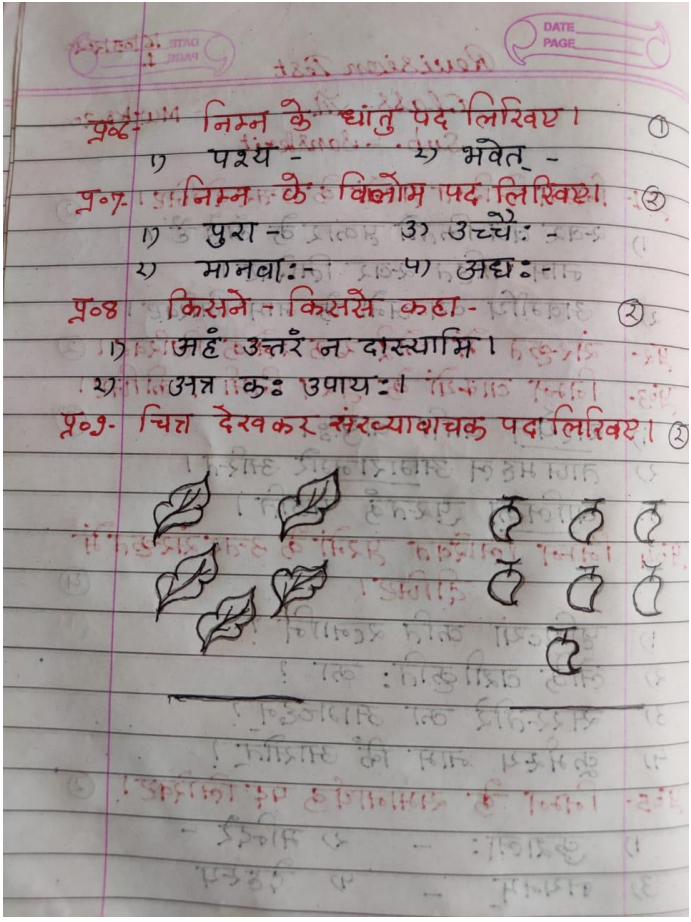 DATE
PAGE
प्र॰6- निम्न के धातु पद लिखिए। ①
1) पश्य - 2) भवेत् -
प्र॰7- निम्न के विलोम पद लिखिए। ②
1) पुरा - 3) उच्चैः -
2) मानवाः - 4) अधः -
प्र॰8 किसने - किससे कहा - ②
1) अहं उत्तरं न दास्यामि।
2) अत्र कः उपायः।
प्र॰9- चित्र देखकर संख्यावाचक पद लिखिए। ②